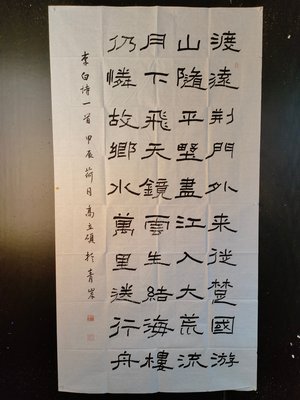 渡遠荆門外来從楚國游
山隨平野盡江入大荒流
月下飛天鏡雲生結海樓
仍憐故鄉水萬里送行舟
李白诗一首 甲辰荷月 高 於青